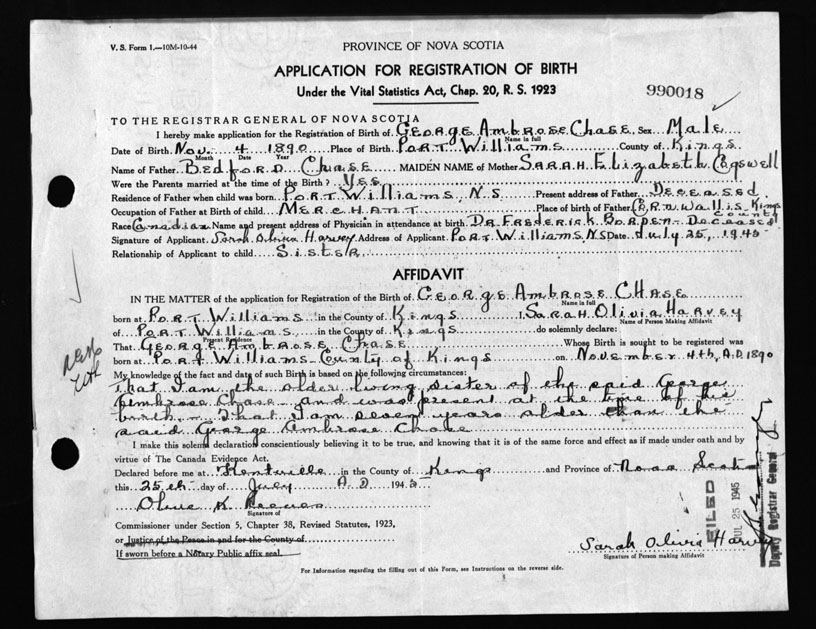 V. S. Form 1.—10M-10-44
PROVINCE OF NOVA SCOTIA
APPLICATION FOR REGISTRATION OF BIRTH
Under the Vital Statistics Act, Chap. 20, R. S. 1923
990018
TO THE REGISTRAR GENERAL OF NOVA SCOTIA
I hereby make application for the Registration of Birth of George Ambrose Chase Sex Male
Name in full
Date of Birth Nov. 4 1890 Place of Birth Port Williams County of Kings
Month Date Year
Name of Father Bedford Chase MAIDEN NAME of Mother Sarah Elizabeth Cogswell
Were the Parents married at the time of the Birth? Yes
Residence of Father when child was born Port Williams, N.S Present address of Father Deceased
Occupation of Father at Birth of child Merchant Place of birth of Father Cornwallis Kings County
Race Canadian Name and present address of Physician in attendance at birth Dr Frederick Borden - Deceased
Signature of Applicant Sarah Olivia Harvey Address of Applicant Port Williams, NS Date July 25, 1945
Relationship of Applicant to child Sister
AFFIDAVIT
IN THE MATTER of the application for Registration of the Birth of George Ambrose Chase
Name in full
born at Port Williams in the County of Kings I, Sarah Olivia Harvey
Name of Person Making Affidavit
of Port Williams in the County of Kings do solemnly declare:
Present Residence
That George Ambrose Chase Whose Birth is sought to be registered was
born at Port Williams County of Kings on November 4th, A.D 1890
My knowledge of the fact and date of such Birth is based on the following circumstances:
That I am the older living sister of the said George
Ambrose Chase and was present at the time of his
birth, - That I am seven years older than the
said George Ambrose Chase
I make this solemn declaration conscientiously believing it to be true, and knowing that it is of the same force and effect as if made under oath and by
virtue of The Canada Evidence Act.
Declared before me at Kentville in the County of Kings and Province of Nova Scotia
this 25th day of July A D 1945
Signature of
Commissioner under Section 5, Chapter 38, Revised Statutes, 1923,
or Justice of the Peace in and for the County of
If sworn before a Notary Public affix seal
Sarah Olivia Harvey
Signature of Person making Affidavit
FILED
JUL 25 1945
Deputy Registrar General
For Information regarding the filling out of this Form, see Instructions on the reverse side.